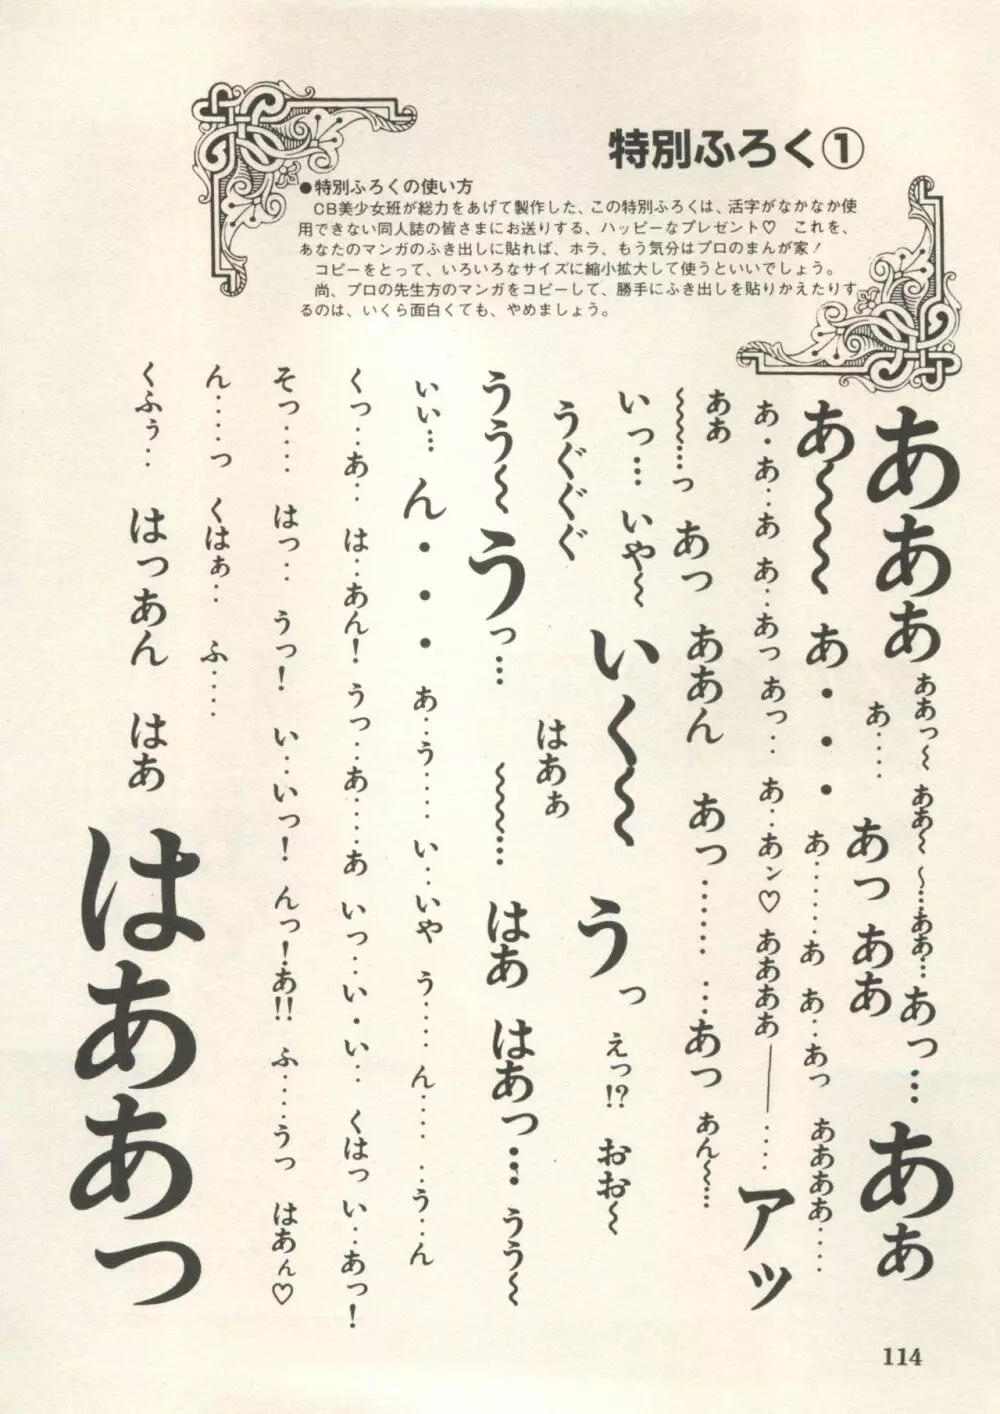 特別ふろく①
●特別ふろくの使い方
CB美少女班が総力をあげて製作した、この特別ふろくは、活字がなかなか使
用できない同人誌の皆さまにお送りする、ハッピーなプレゼント♡ これを、
あなたのマンガのふき出しに貼れば、ホラ、もう気分はプロのまんが家！
コピーをとって、いろいろなサイズに縮小拡大して使うといいでしょう。
尚、プロの先生方のマンガをコピーして、勝手にふき出しを貼りかえたりす
るのは、いくら面白くても、やめましょう。
あぁぁ ああっ〜 ああ〜 〜…ああ… あっ… あぁ
あ‥‥ あっ ああ
あ〜〜〜 あ・・・ あ……あ あ‥あっ ああああ‥‥
あ・あ‥あ あ‥あっ あっ‥ あ‥あン♡ ああああ――‥‥アッ
ああ
〜〜〜…っ あっ ああん あっ…… …あっ あん〜…
いっ… いや〜 いく〜 うっ えっ!? おお〜
うぐぐぐ はあぁ
うう〜 うっ… 〜〜… はあ はあっ… うう〜
いい… ん・・・ あ‥う‥‥ い‥いや う‥‥ん‥‥ ‥う‥ん
くっ‥あ‥ は‥あん！ うっ‥あ‥‥あ いっ‥い・い‥ くはっ い‥あっ！
そっ‥‥ はっ‥ うっ！ い‥いっ！ んっ！あ!! ふ‥‥うっ はあん♡
ん‥‥っ くはぁ‥ ふ‥‥
くふぅ‥ はっあん はあ はああっ
114